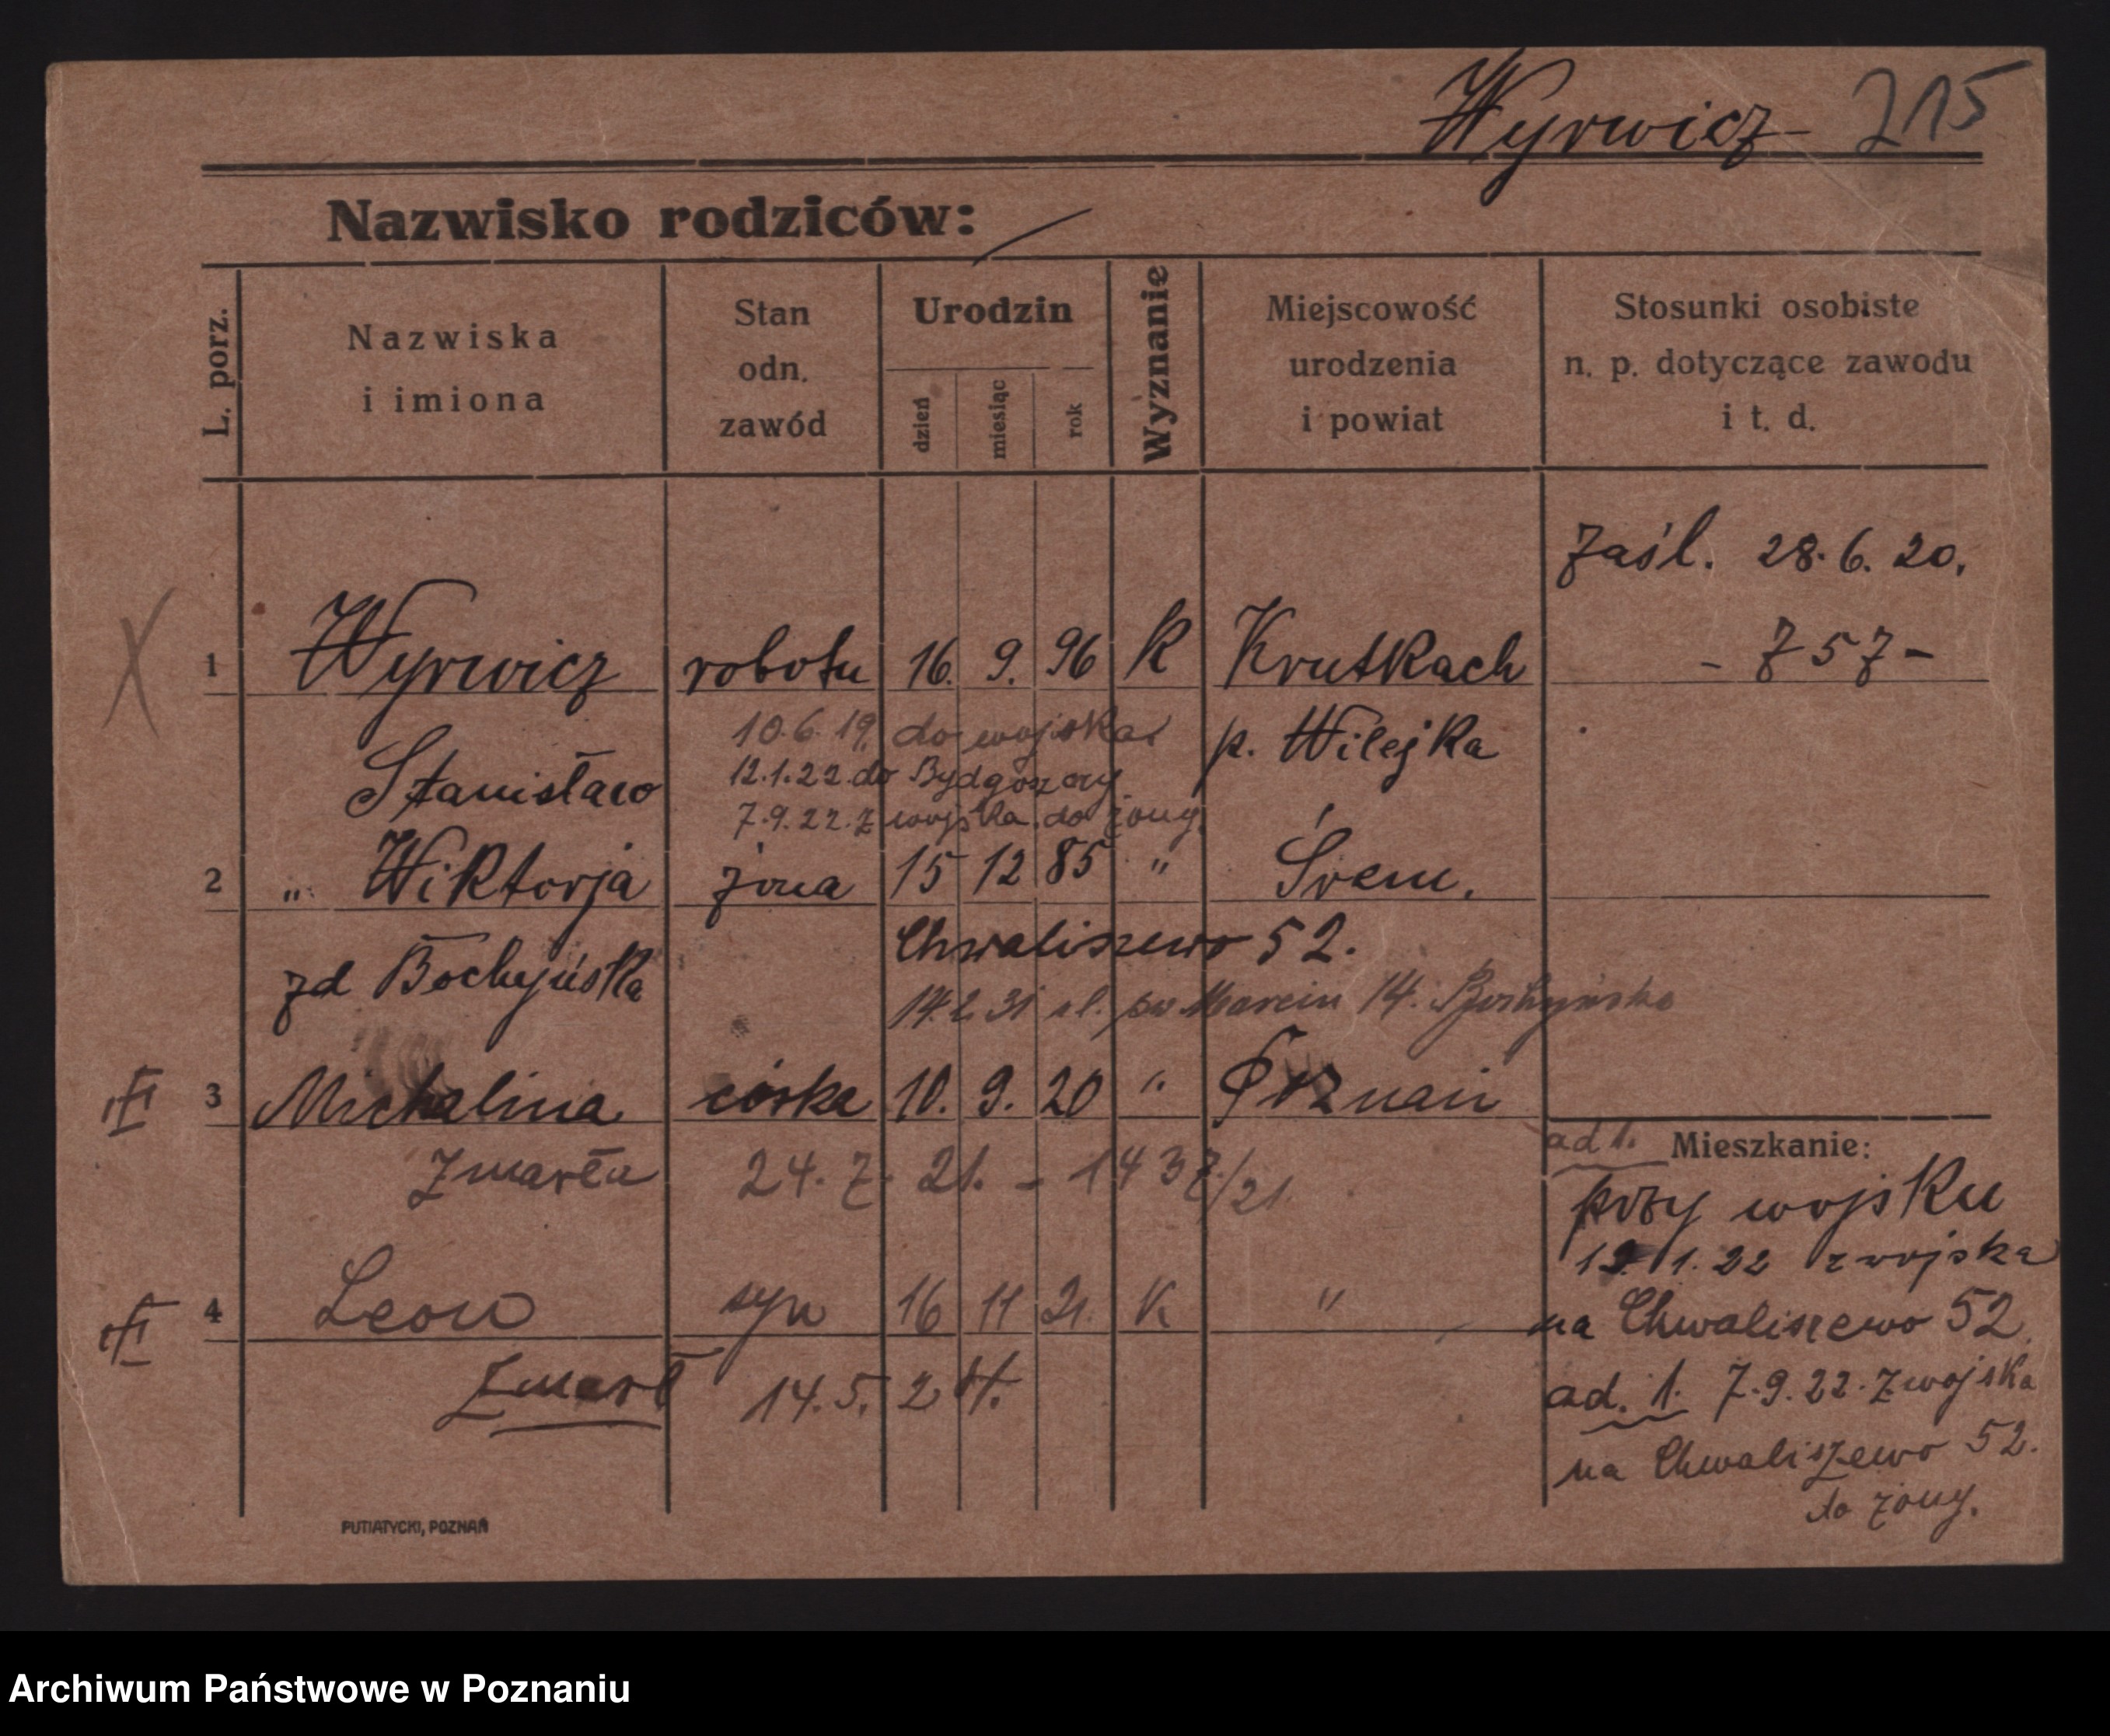 Wyrwicz 215
Nazwisko rodziców:
L. porz.
Nazwiska
i imiona
Stan
odn.
zawód
Urodzin
dzień
miesiąc
rok
Wyznanie
Miejscowość
urodzenia
i powiat
Stosunki osobiste
n. p. dotyczące zawodu
i t. d.
zaśl. 28.6.20.
1 Wyrwicz robotn 16. 9. 96 k Krutkach - 757 -
10.6.19. do wojska p. Wilejka
Stanisław 12.1.22 do Bydgoszczy
7.9.22. z wojska do żony
2 „ Wiktorja żona 15 12 85 „ Śrem.
Chwaliszewo 52.
zd Bochyńska
św Marcin 14. Bochyńska
3 Michalina córka 10. 9. 20 „ Poznań
Zmarła 24. 7. 21. - 1437/21
4 Leon syn 16 11 21. K „
Zmarł 14. 5. 24.
ad 1. Mieszkanie:
przy wojsku
12.1.22 z wojska
na Chwaliszewo 52
ad. 1. 7.9.22. z wojska
na Chwaliszewo 52.
do żony.
PUTIATYCKI, POZNAŃ
Archiwum Państwowe w Poznaniu